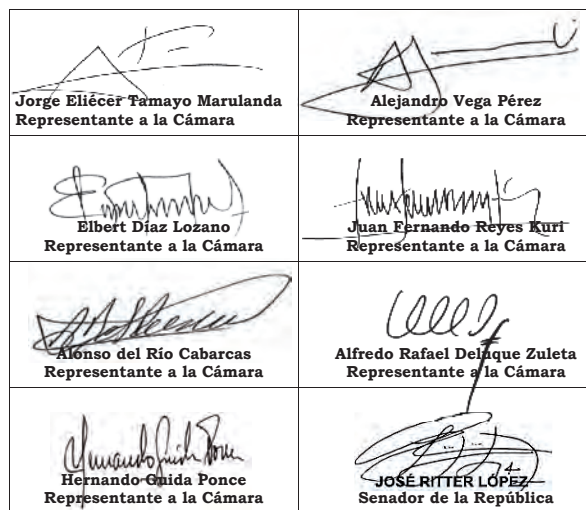 Jorge Eliécer Tamayo Marulanda
Representante a la Cámara
Alejandro Vega Pérez
Representante a la Cámara
Elbert Díaz Lozano
Representante a la Cámara
Juan Fernando Reyes Kuri
Representante a la Cámara
Alonso del Río Cabarcas
Representante a la Cámara
Alfredo Rafael Deluque Zuleta
Representante a la Cámara
Hernando Guida Ponce
Hernando Guida Ponce
Representante a la Cámara
JOSÉ RITTER LÓPEZ
Senador de la República